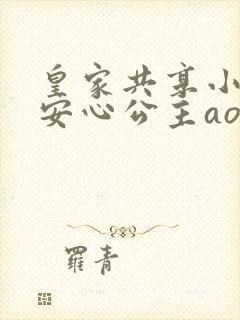 皇家共享小
安心公主ao
羅青